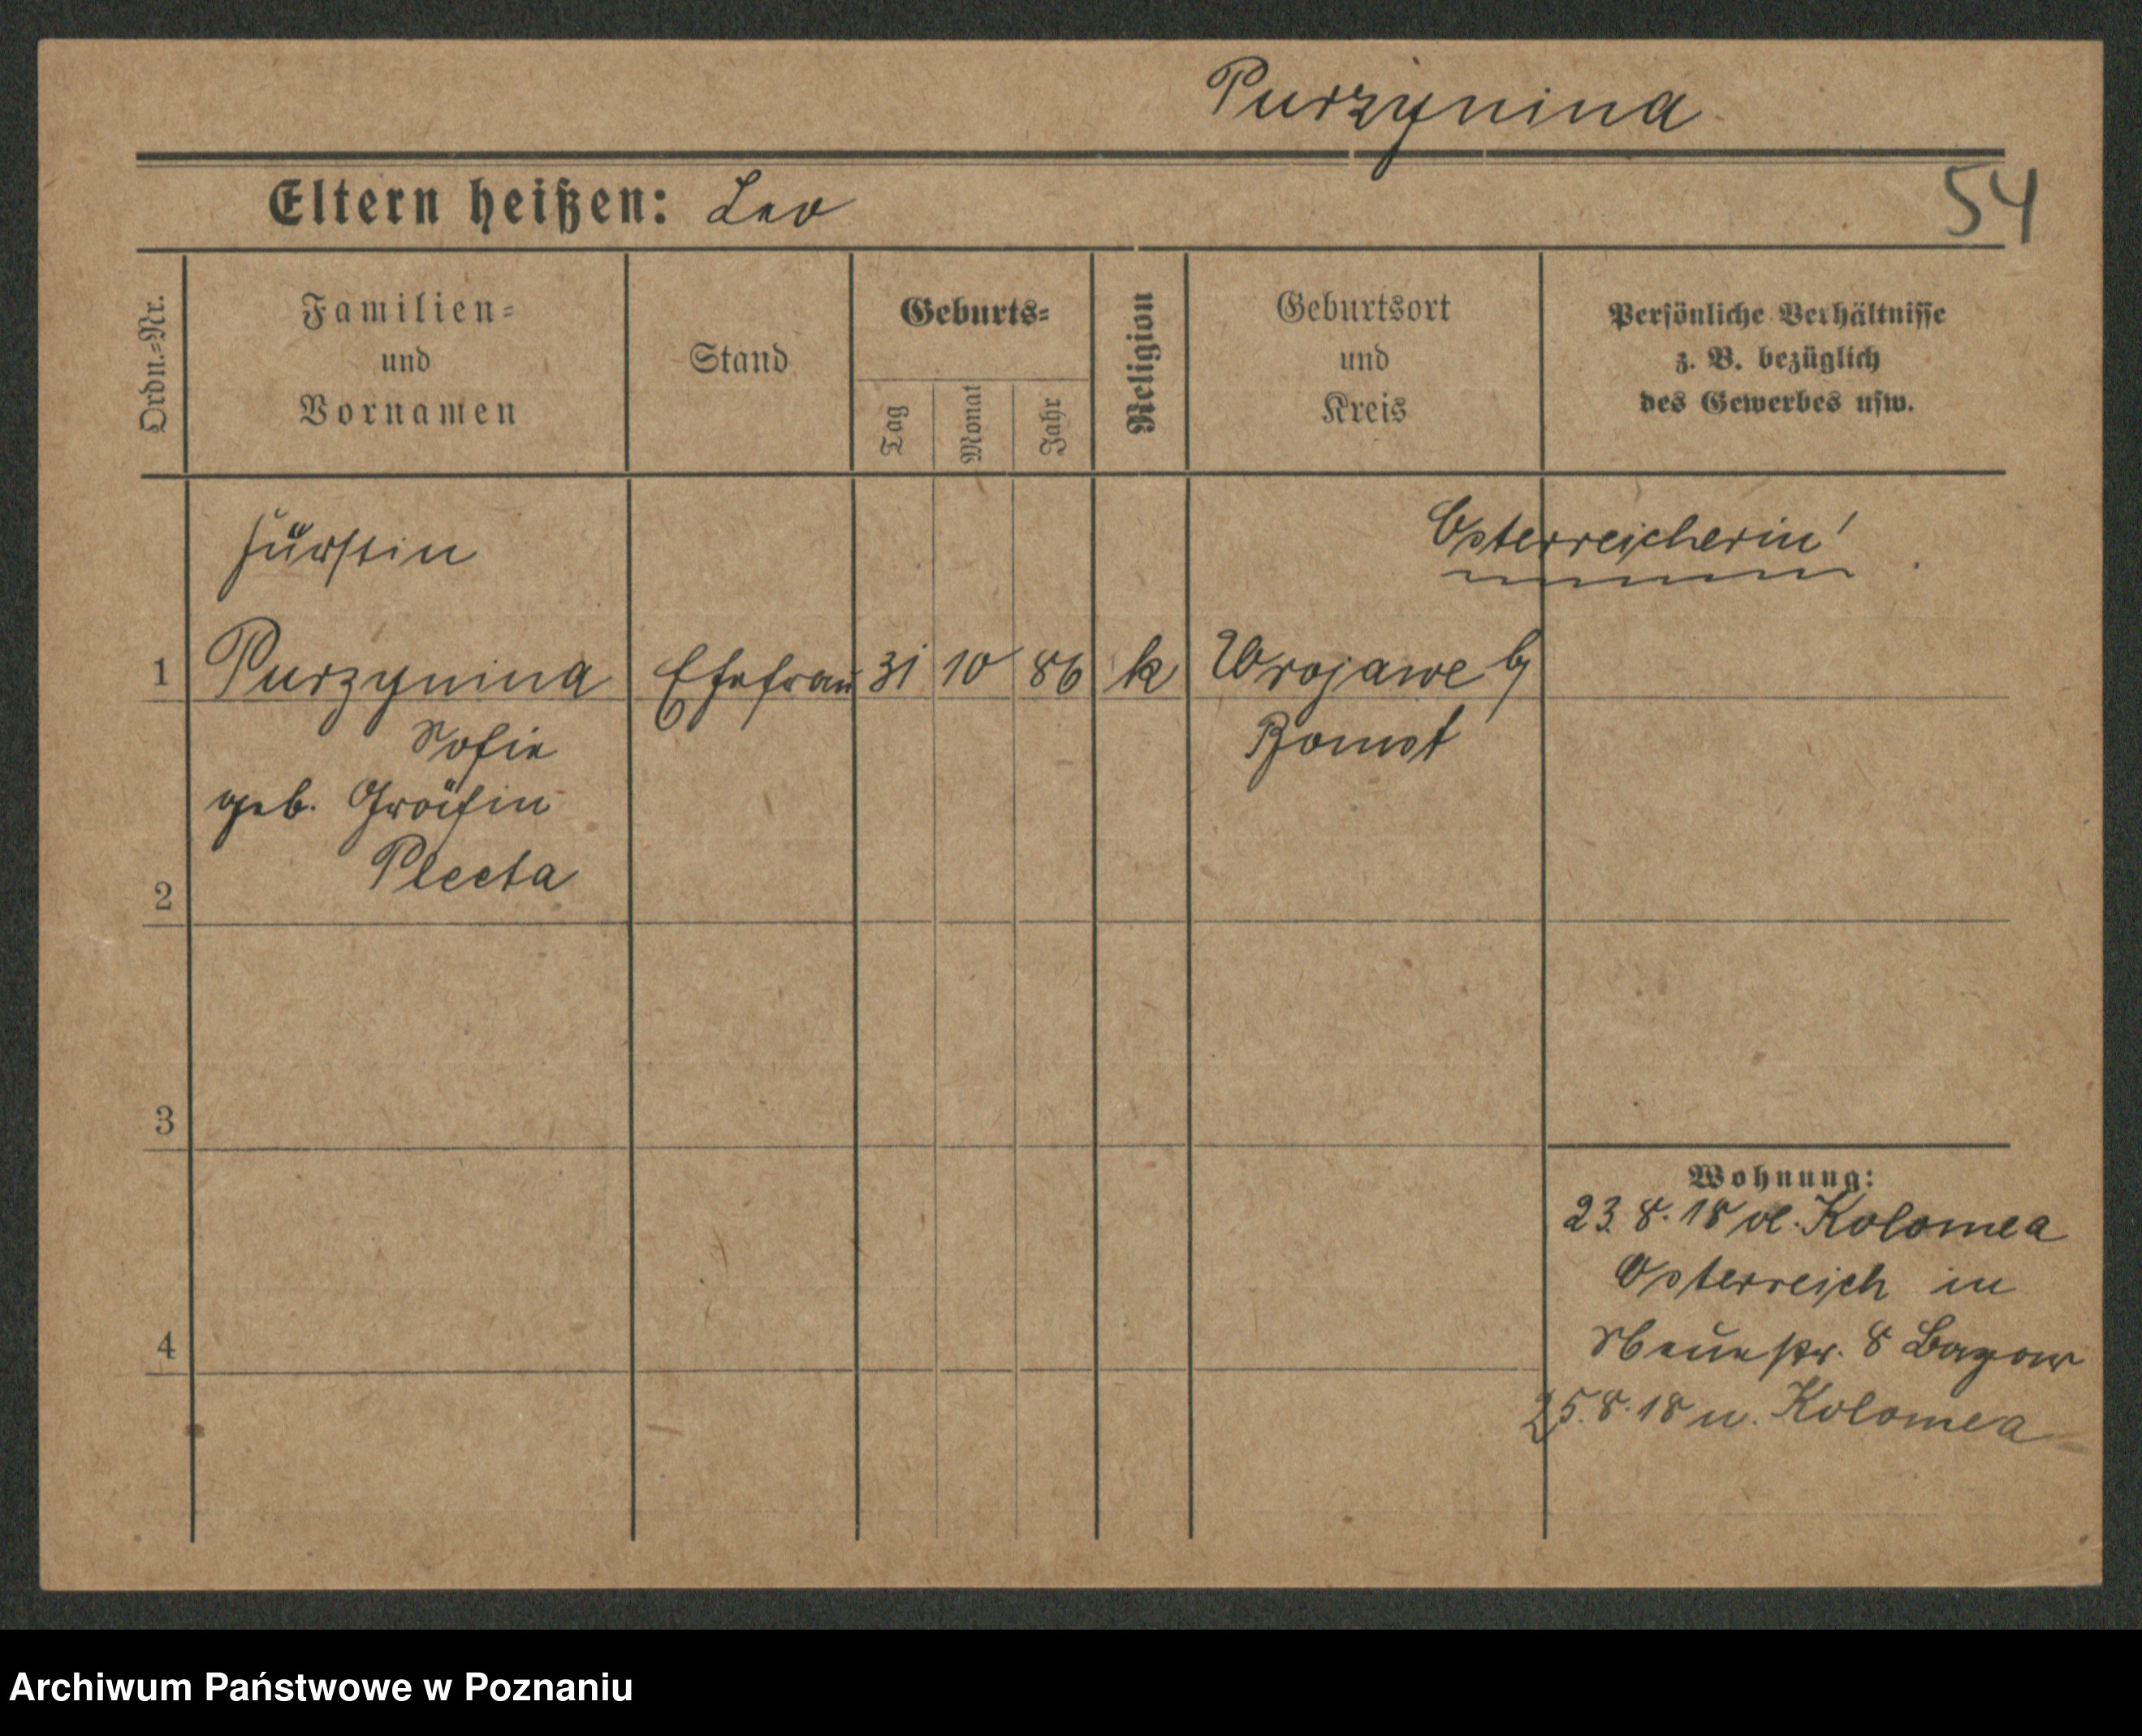 Purzynina
Eltern heißen: Leo
54
Ordn.=Nr.
Familien=
und
Vornamen
Stand
Geburts=
Tag
Monat
Jahr
Religion
Geburtsort
und
Kreis
Persönliche Verhältnisse
z. B. bezüglich
des Gewerbes usw.
Fürstin
Österreicherin!
1 Purzynina Ehefrau 31 10 86 k Wrojawe
Bomst
Sofie
geb. Gräfin
Plecta
2
3
4
Wohnung:
23. 8. 18 Kolomea
Österreich in
Neuestr. 8
25. 8. 18 n. Kolomea
Archiwum Państwowe w Poznaniu